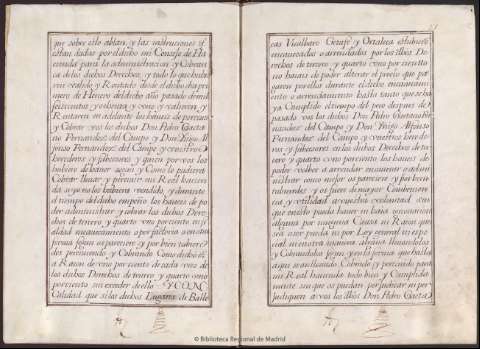 que sobre ello ablan, y las instruciones q̃
estan dadas por el dicho mi Consejo de Ha
cienda para la administracion y Cobran
ca de los dichos Derechos, y todo lo que hubie
ren rentado y Rentado desde el dicho dia pri
mero de Henero del dicho año pasado de mil
seiscientos y ochenta y uno y valieren, y
Rentaren en adelante los haueis de perceuir
y Cobrar vos los dichos Don Pedro Caeta
no Fernandez del Campo y Don Yñigo Al
fonso Fernandez del Campo y vuestros
herederos y subcesores y quien por vos los
hubiere de hauer segun y Como lo pudiera
Cobrar lleuar y perceuir mi Real hacien
da si yo no los hubiera vendido, y durante
el tiempo del dicho empeño los haueis de po
der administrar y cobrar los dichos Derec
hos de tercero y quarto uno por ciento en fi
eldad encauezamiento o por factoria o en otra
forma segun os pareciere y por bien tubiere
des perciuiendo y Cobrando Como dicho es
a Racon de vno por ciento de cada vno de
los dichos Derechos de tercero y quarto vno
por ciento sin exceder de ello Y CON
Calidad que si los dichos Lugares de Balle
cas Vicalbaro Getafe y Ortaleca estubieren
encauezados o arrendados por los dhos De
rechos de tercero y quarto vno por ciento
no haueis de poder alterar el precio que pa
garen por ellos durante el dicho encauezami
ento o arrendamiento hasta tanto que aya
ya Cumplido el tiempo del pero despues de
pasado vos los dichos Don Pedro Caetano Fer
nandez del Campo y Donˢ Yñigo Alfonso
Fernandez del Campo y vuestros herede
ros y subcesores en los dichos Derechos de ter
cero y quarto vno por ciento los haueis de
poder voluer a arrendar encauezar o admi
nistrar como mejor os pareciere y por bien
tubieredes y os fuere de mayor Conbenien
cia y vtilidad a vuestra voluntad sin
que en ello pueda hauer ni haia embarazo
alguno por ninguna Causa ni Racon que
sea o ser pueda ni por Ley general ni espe
cial ni en otra manera alguna lleuandolos
y Cobrandolos segun y en la forma que hasta
aqui se an lleuado Cobrado y perceuido para
mi Real hacienda todo bien y Cumplida
mente sin que os puedan por judicar ni per
judiquen a vos los dhos Don Pedro Caeta
© Biblioteca Regional de Madrid